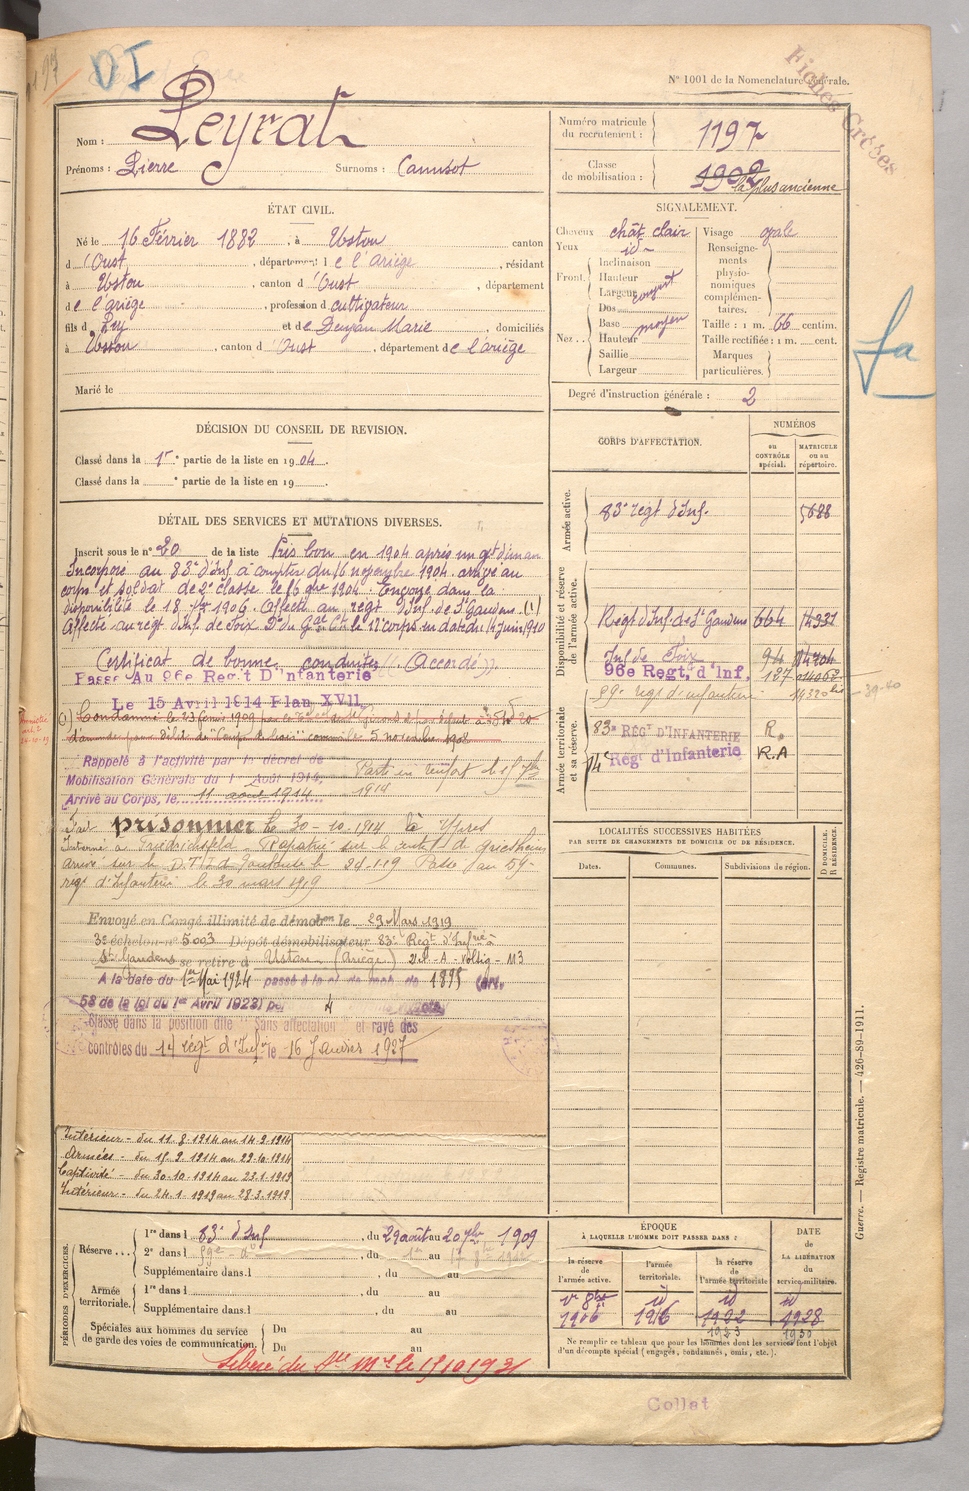 197
DI
N° 1001 de la Nomenclature générale.
Fiches Crèses
Nom : Peyrat
Prénoms : Pierre Surnoms : Canusot
Numéro matricule du recrutement : 1197
Classe de mobilisation : 1902 la plus ancienne
ÉTAT CIVIL.
Né le 16 Février 1882, à Ustou canton
d'Oust, département de l'ariège, résidant
à Ustou, canton d'Oust, département
de l'ariège, profession d cultivateur
fils d et de Marie, domiciliés
à Ustou, canton d'Oust, département de l'ariège
Marié le
SIGNALEMENT.
Cheveux chât clair
Yeux id
Front. Inclinaison
Hauteur
Largeur
Nez. Dos
Base moyen
Hauteur
Saillie
Largeur
Visage ovale
Renseignements physionomiques complémentaires.
Taille : 1 m. 66 centim.
Taille rectifiée : 1 m. cent.
Marques particulières.
Degré d'instruction générale : 2
fa
DÉCISION DU CONSEIL DE REVISION.
Classé dans la 1re partie de la liste en 1904.
Classé dans la e partie de la liste en 19
DÉTAIL DES SERVICES ET MUTATIONS DIVERSES.
Inscrit sous le n° 20 de la liste Pris bon en 1904 après un ajt d'un an
Incorporé au 83e d'Inf à compter du 16 novembre 1904 arrivé au
corps et soldat de 2e classe le 16 9bre 1904. Envoyé dans la
disponibilité le 18 1906. Affecté au régt d'Inf. de St Gaudens (1)
Affecté au régt d'Inf. de Foix le 12e corps en date du 14 juin 1910
Certificat de bonne conduite (Accordé)
Passé Au 96e Reg't D'Infanterie
Le 15 Avril 1914 Plan XVII.
(1) Condamné le 23 février 1909
d'amende pour délit de commis le 5 novembre 1908
Rappelé à l'activité par le décret de
Mobilisation Générale du 1 Août 1914,
Arrivé au Corps, le 11 août 1914
Parti en renfort le 15 7bre 1914
Fait prisonnier le 30-10-1914 à Ypres
Interné à Friedrichsfeld - Rapatrié sur le centre de Griesheim
arrivé sur le D.T.I. de Toulouse le 24.1.19 Passé au 59e
régt d'Infanterie le 30 mars 1919
Envoyé en Congé illimité de démobon le 29 Mars 1919
3e échelon n° 5003 Dépôt démobilisateur 83e Régt d'Infie à
St Gaudens se retire à Ustou (Ariège)
A la date du 1er Mai 1924 passé à la cl de mob de 1895 (art.
58 de la loi du 1er Avril 1923) 4
Classé dans la position dite "Sans affectation" et rayé des
contrôles du 14 régt d'Infie le 16 Janvier 1927
Intérieur - du 11.8.1914 au 14.9.1914
Armées - du 15.9.1914 au 29.10.1914
Captivité - du 30.10.1914 au 23.1.1919
Intérieur - du 24.1.1919 au 28.3.1919
CORPS D'AFFECTATION.
NUMÉROS
au CONTRÔLE spécial.
MATRICULE ou au répertoire.
Armée active.
83e régt d'Inf. 5688
Disponibilité et réserve de l'armée active.
Régt d'Inf. de St Gaudens 664 14331
Inf de Foix 94
96e Regt. d'Inf. 127
59e régt d'infanterie 39-40
Armée territoriale et sa réserve.
83e RÉGT D'INFANTERIE R.
14e Régt d'Infanterie R.A
LOCALITÉS SUCCESSIVES HABITÉES
PAR SUITE DE CHANGEMENTS DE DOMICILE OU DE RÉSIDENCE.
Dates. Communes. Subdivisions de région. D DOMICILE. R RÉSIDENCE.
PÉRIODES D'EXERCICES.
Réserve...
1re dans l 83e d'Inf, du 29 août au 20 7bre 1909
2e dans l 59e, du 1er au 17
Supplémentaire dans l, du au
Armée territoriale.
1re dans l, du au
Supplémentaire dans l, du au
Spéciales aux hommes du service de garde des voies de communication.
Du au
Du au
Libéré du Sce Mre le 15 10 1931
ÉPOQUE
À LAQUELLE L'HOMME DOIT PASSER DANS :
la réserve de l'armée active.
l'armée territoriale.
la réserve de l'armée territoriale
DATE DE LA LIBÉRATION du service militaire.
1er 8bre 1906
id 1916
id 1922 1923
id 1928 1930
Ne remplir ce tableau que pour les hommes dont les services font l'objet
d'un décompte spécial (engagés, condamnés, omis, etc.).
Guerre. — Registre matricule. — 426-89-1911.
Collat